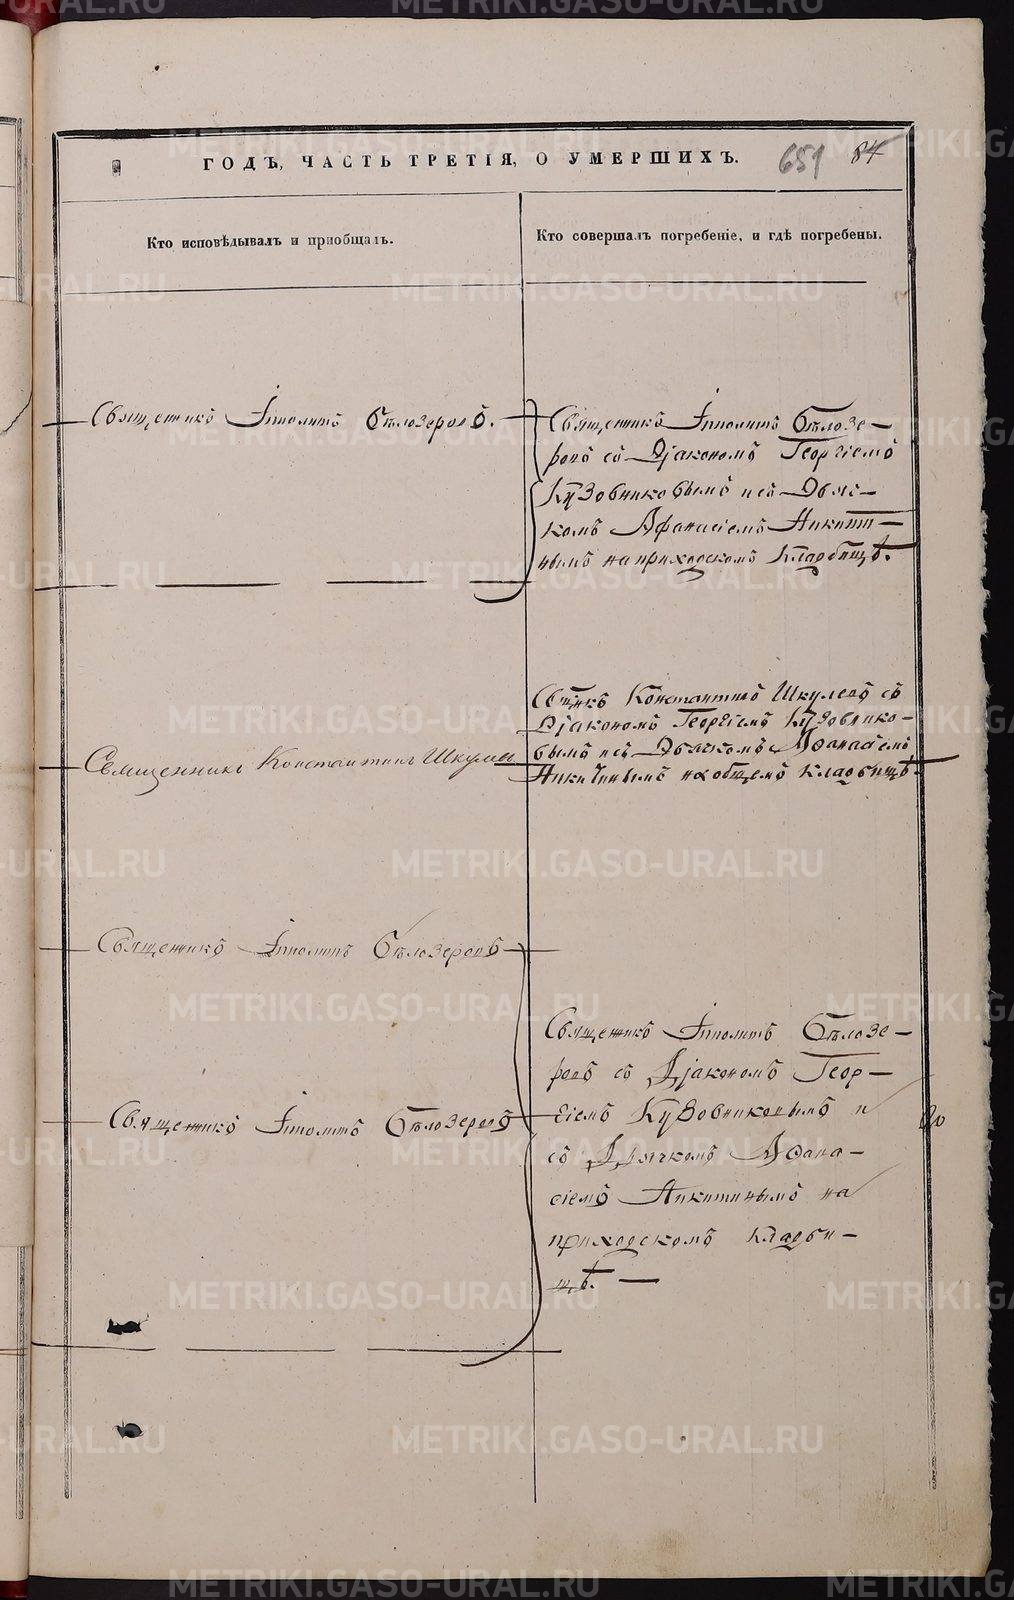 ГОДЪ, ЧАСТЬ ТРЕТІЯ, О УМЕРШИХЪ.
651 84
Кто исповѣдывалъ и пріобщалъ.
Кто совершалъ погребеніе, и гдѣ погребены.
Священникъ Іпполитъ Бѣлозеровъ.
Священникъ Іпполитъ Бѣлозе-
ровъ съ Діакономъ Георгіемъ
Кузовниковымъ и съ Дьяч-
комъ Афанасіемъ Никити-
нымъ на приходскомъ кладбищѣ.
Священникъ Константинъ Шкулевъ
Свщнкъ Константинъ Шкулевъ съ
Діакономъ Георгіемъ Кузовнико-
вымъ и съ Дьячкомъ Афанасіемъ
Никитинымъ на общемъ кладбищѣ.
Священникъ Іпполитъ Бѣлозеровъ
Священникъ Іпполитъ Бѣлозеровъ
Священникъ Іпполитъ Бѣлозе-
ровъ съ Діакономъ Геор-
гіемъ Кузовниковымъ и
съ Дьячкомъ Афана-
сіемъ Никитинымъ на
приходскомъ кладби-
щѣ.
METRIKI.GASO-URAL.RU